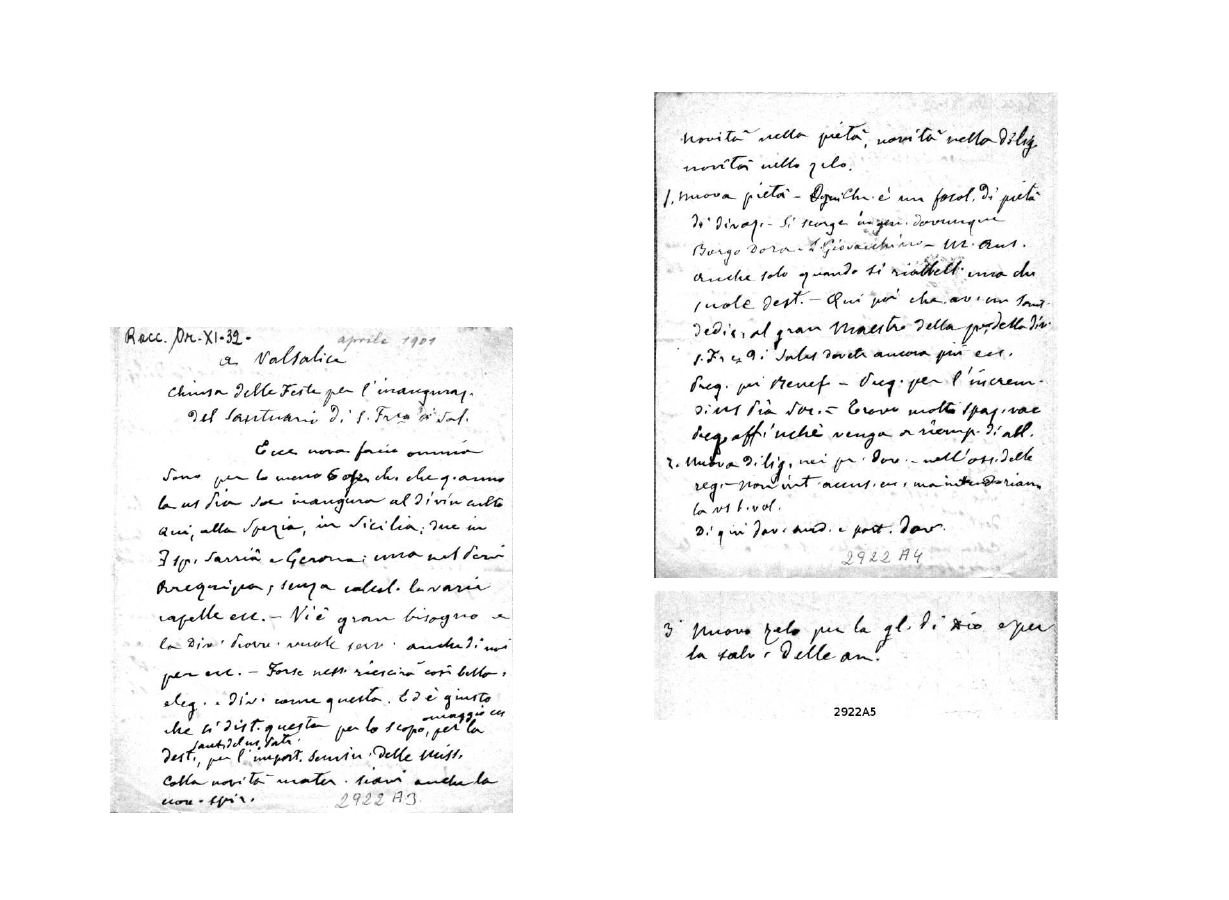 Racc. Or. XI-32-
aprile 1901
a Valsalice
Chiusa delle Feste per l'inauguraz.
del Santuario di S. Frco di Sal.
Ecce nova facio omnia
Sono per lo meno 6 che q. anno
la ns Pia Soc inaugura al divin culto
Qui, alla Spezia, in Sicilia; due in
Isp. Sarrià e Gerona; una nel Perù
Arequipa; senza calcol. le varie
capelle ecc. - V'è gran bisogno e
la Div. vuole serv. anche di noi
per ecc. - Forse ness. riescirà così bella,
eleg. e div. come questa. Ed è giusto
che si dist. questa per lo scopo, omaggio per la
dest., per l'import. Semin. delle Miss.
Colla novità mater. siavi anche la
spir.
2922 A3
novità nella pietà, novità nella dilig
novità nello zelo.
1. Nuova pietà - Ogni Ch. è un focol. di pietà
di divoz. - Si scorge in gen. dovunque
Borgo Dora - S. Giovacchino - M. Aus.
anche solo quando si riabbell. una che
suole dest. - Qui poi che av. un Sant.
dedic. al gran Maestro della p. della div.
S. Frco di Sales dovete ancora più ecc.
Preg. pei Benef - Preg. per l'increm.
di ns Pia Soc. - Trovo molto spaz. vac
Preg. affinchè venga a riemp. di all.
2. Nuova dilig. nei pr. dov. - nell'oss. delle
reg. - Non int accus. ecc. ma
la vs b. vol.
Di qui dov. and. e port. dov.
2922 A4
3 Nuovo zelo per la gl. di Dio e per
la salv. delle an.
2922A5